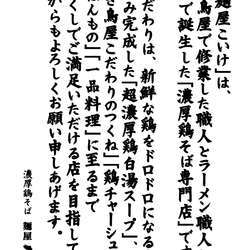 麺屋こいけ」は、
鳥屋で修業した職人とラーメン職人
で誕生した「濃厚鶏そば専門店」で
だわりは、新鮮な鶏をドロドロになる
み完成した「超濃厚鶏白湯スープ」、
き鳥屋こだわりのつくね」「鶏チャーシュ
はんもの」「一品料理」に至るまで
くしてご満足いただける店を目指して
がらもよろしくお願い申し上げます。
濃厚鶏そば 麺屋